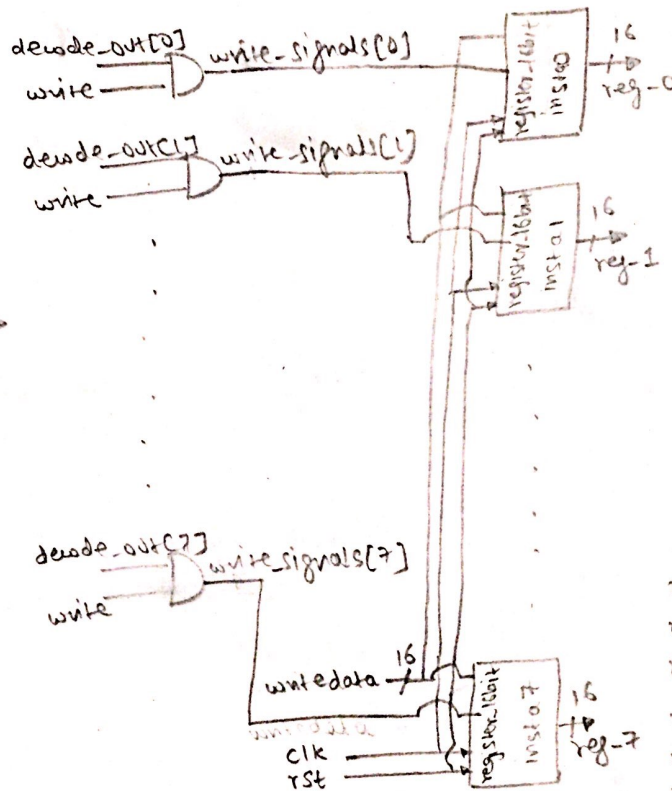 decode_out[0]
write
write_signals[0]
register_16bit
insta0
16
reg-0
decode_out[1]
write
write_signals[1]
register_16bit
insta1
16
reg-1
decode_out[7]
write
write_signals[7]
writedata
16
clk
rst
register_16bit
insta7
16
reg-7